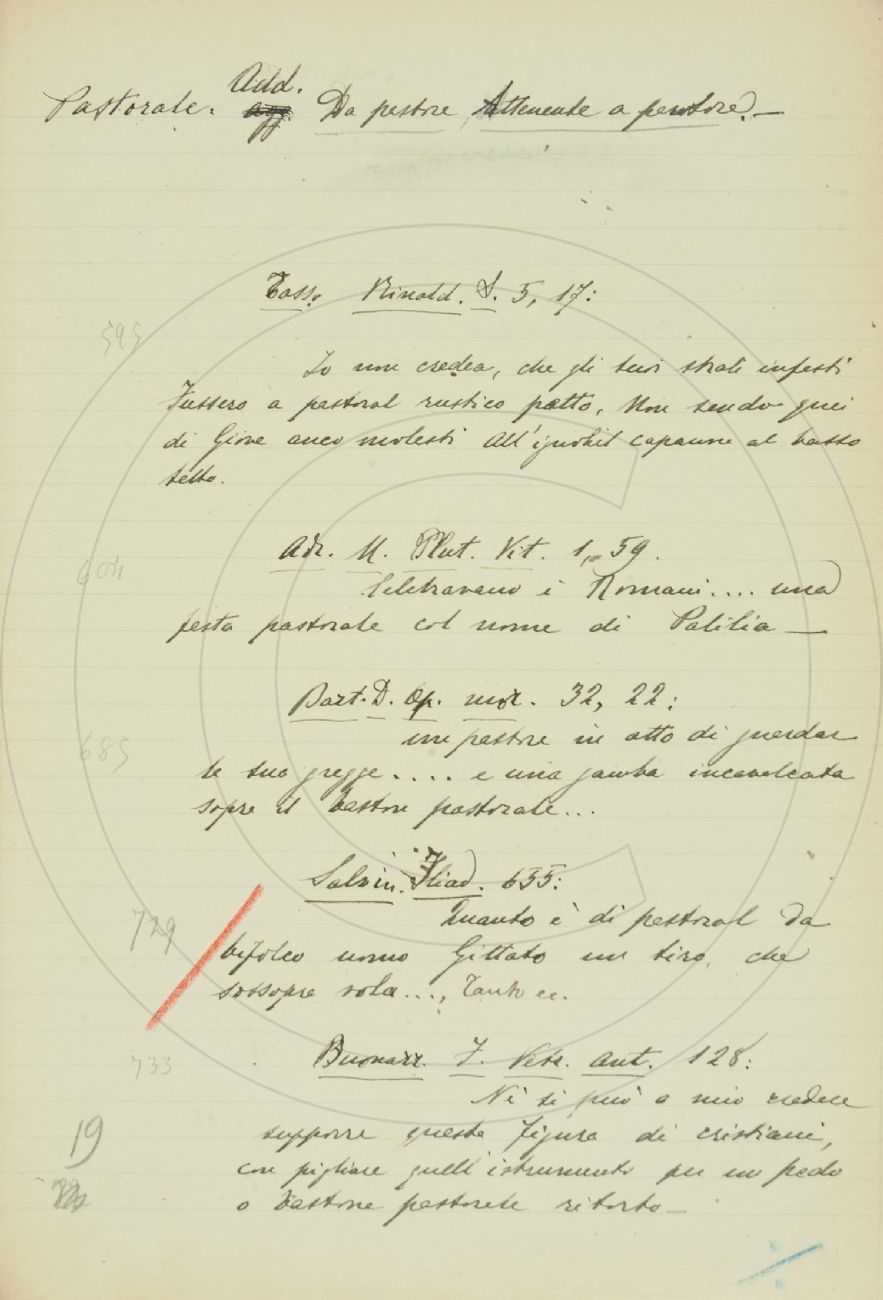 Add.
Pastorale. agg. Da pastore Attenente a pastore. —
Tasso Rinald. S. 5, 17:
595
Io non credea, che gli tuoi strali infesti
Fussero a pastoral rustico petto, Non sendo quei
di Giove anco molesti All'ignobil capanne al basso
tetto.
Adr. M. Plut. Vit. 1, 59.
604
Celebravano i Romani.... una
festa pastorale col nome di Palilia —
Bart. D. Op. mor. 32, 22:
685
un pastore in atto di guardar
la sua gregge.... e una gamba incavalcata
sopra il baston pastorale...
Salvin. Iliad. 655:
729
Quanto è di pastoral da
bifolco uomo Gittato un tiro, che
sossopra vola..., Tanto ec.
Buonarr. F. Vetr. ant. 128:
733
Nè si può a mio credere
supporre queste figure di cristiani,
19
con pigliare quell'istrumento per un pedo
o bastone pastorale ritorto —